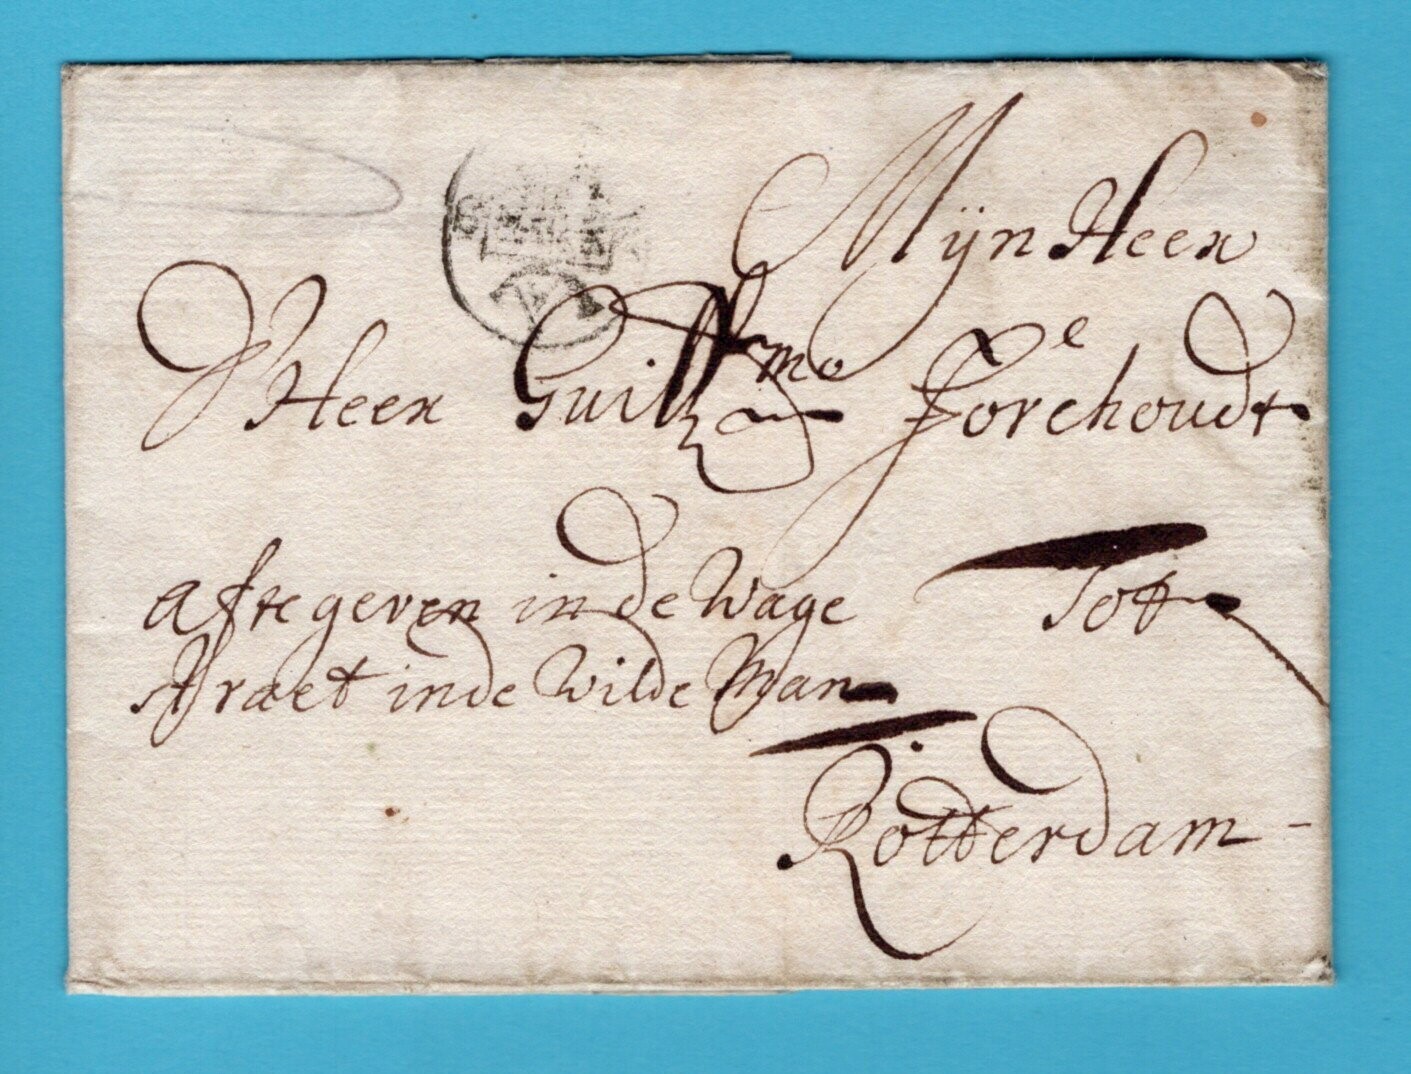 Mijn Heer
Mijn Heer Guill^mo Forchoudt
Tot
af te geven in de Wage
straet inde Wilde Man
Rotterdam